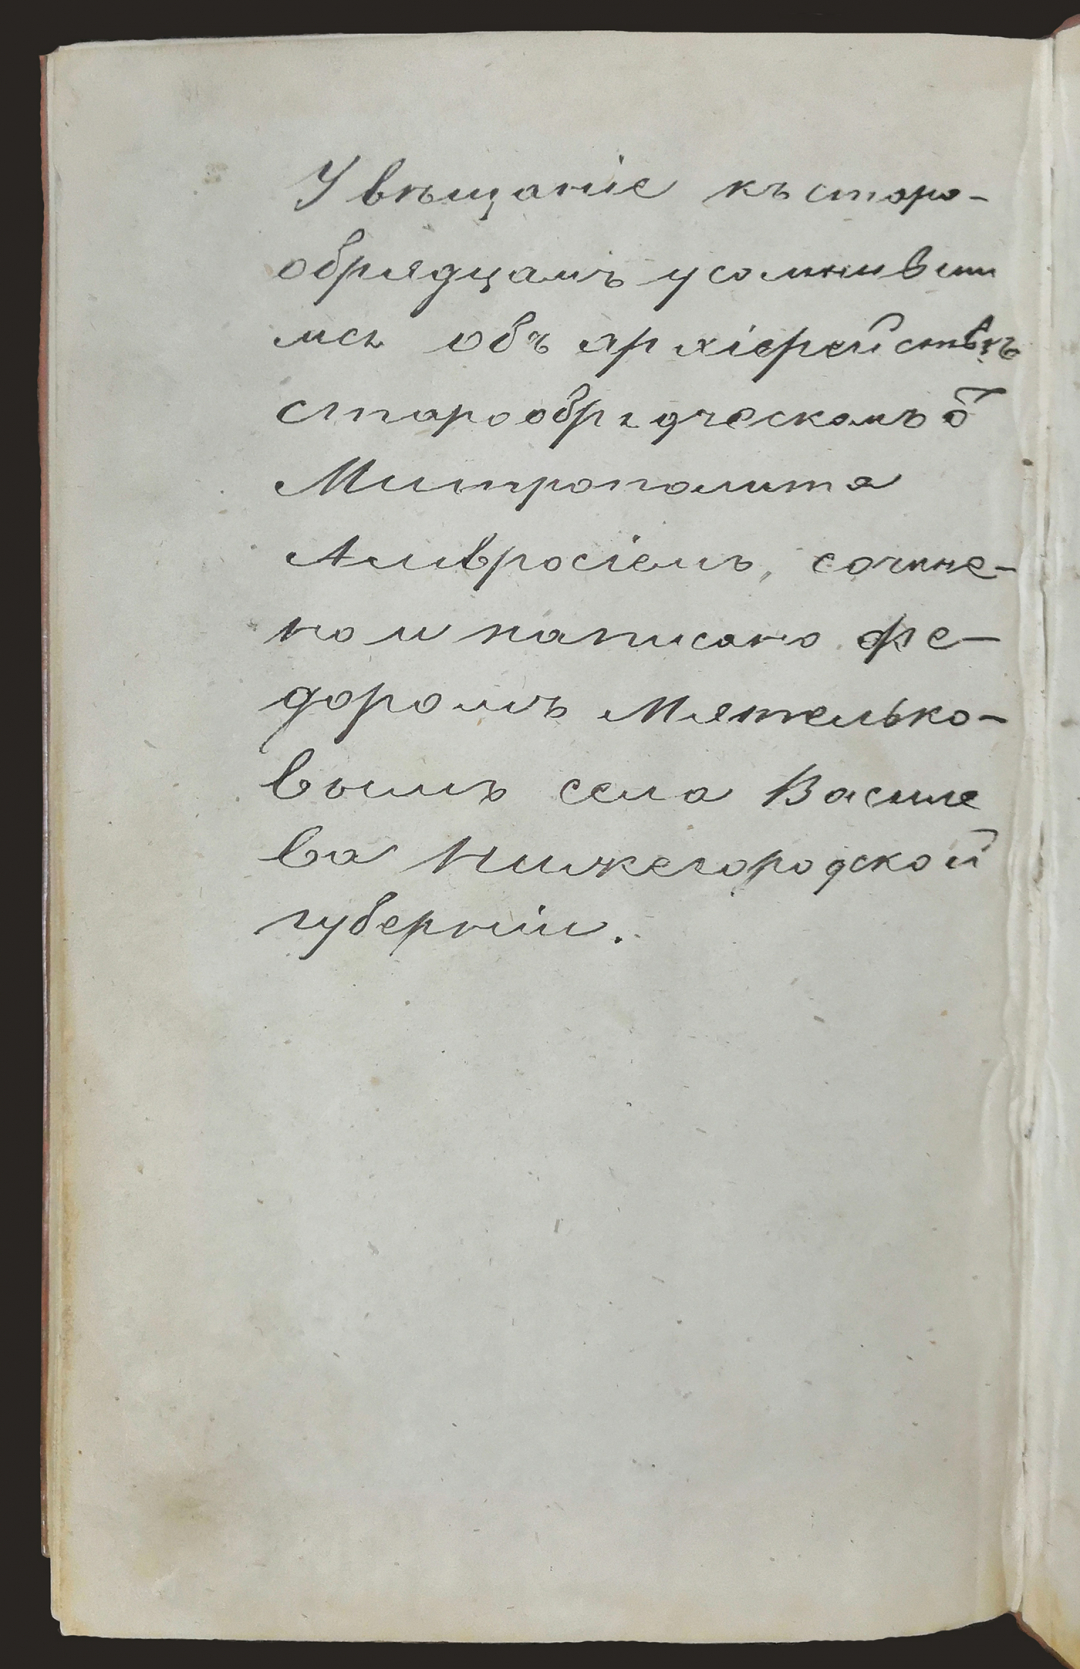 Увѣщаніе къ старо-
обрядцамъ усомнивши
мся объ архіерействѣ
старообрядческомъ ѿ
Митрополита
Амвросіемъ, сочине-
но и написано Фе-
доромъ Мятелько-
вымъ села Василе
ва Нижегородской
губерніи.